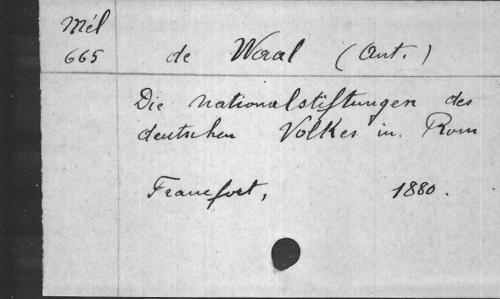 Mél
665
de Waal (Ant.)
Die nationalstiftungen des
deutschen Volkes in Rom
Francfort, 1880.